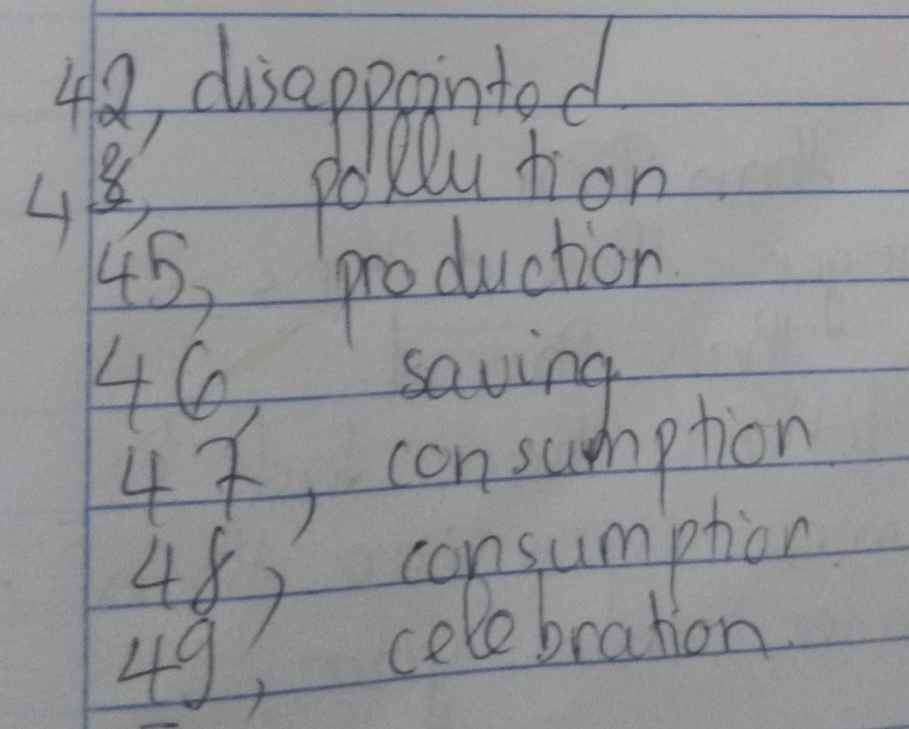 42, disappointed
48, pollution
45, production
46, saving
47, consumption
48, consumption
49, celebration